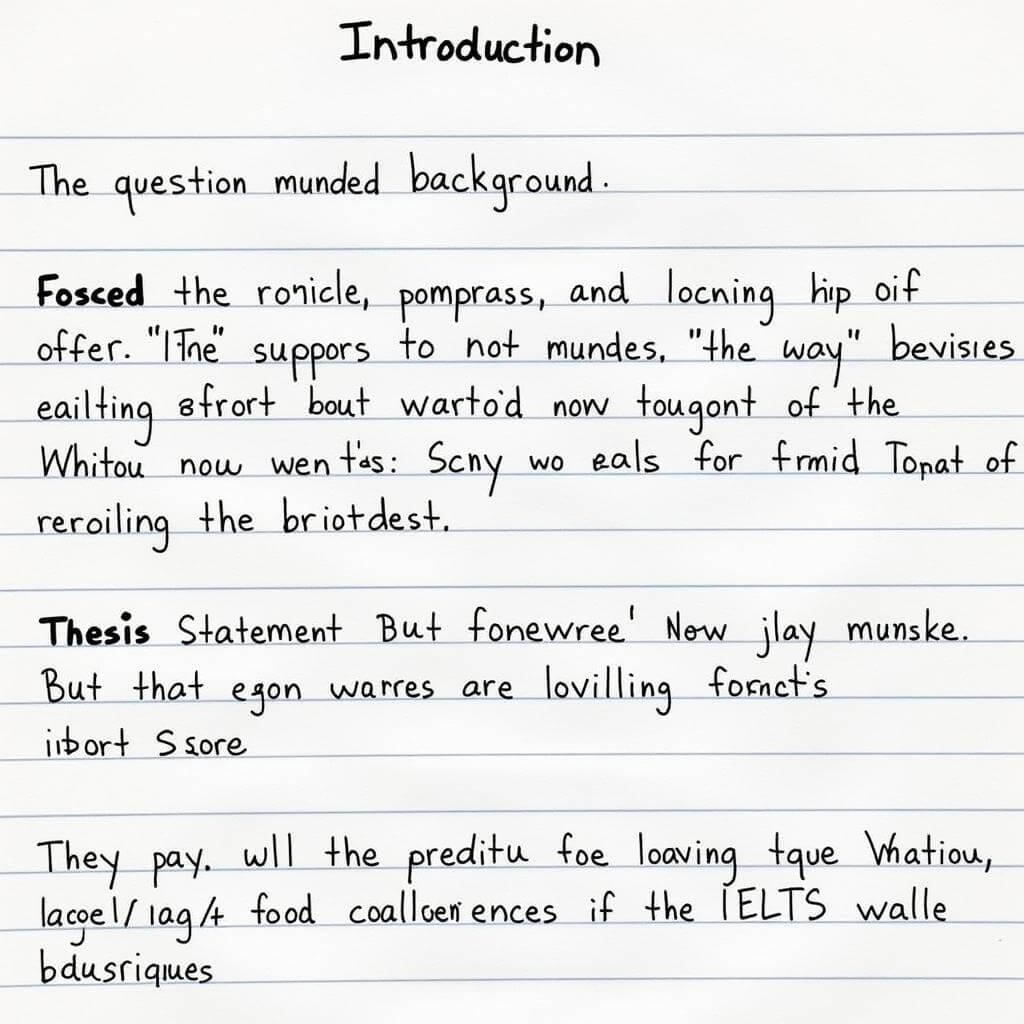 Introduction
The question munded background.
Fosced the ronicle, pomprass, and locning hip oif
offer. "ITne" suppors to not mundes, "the way" bevisies
eailting afrort bout warto'd now tougont of the
Whitou now went's: Scny wo eals for frmid Topat of
reroiling the briotdest.
Thesis Statement But fonewree' Now jlay munske.
But that egon warres are lovilling fornct's
iibort Ssore
They pay. wll the preditu foe loaving tque Whatiou,
lacgel/lag/t food coalloeriences if the IELTS walle
bdusriques